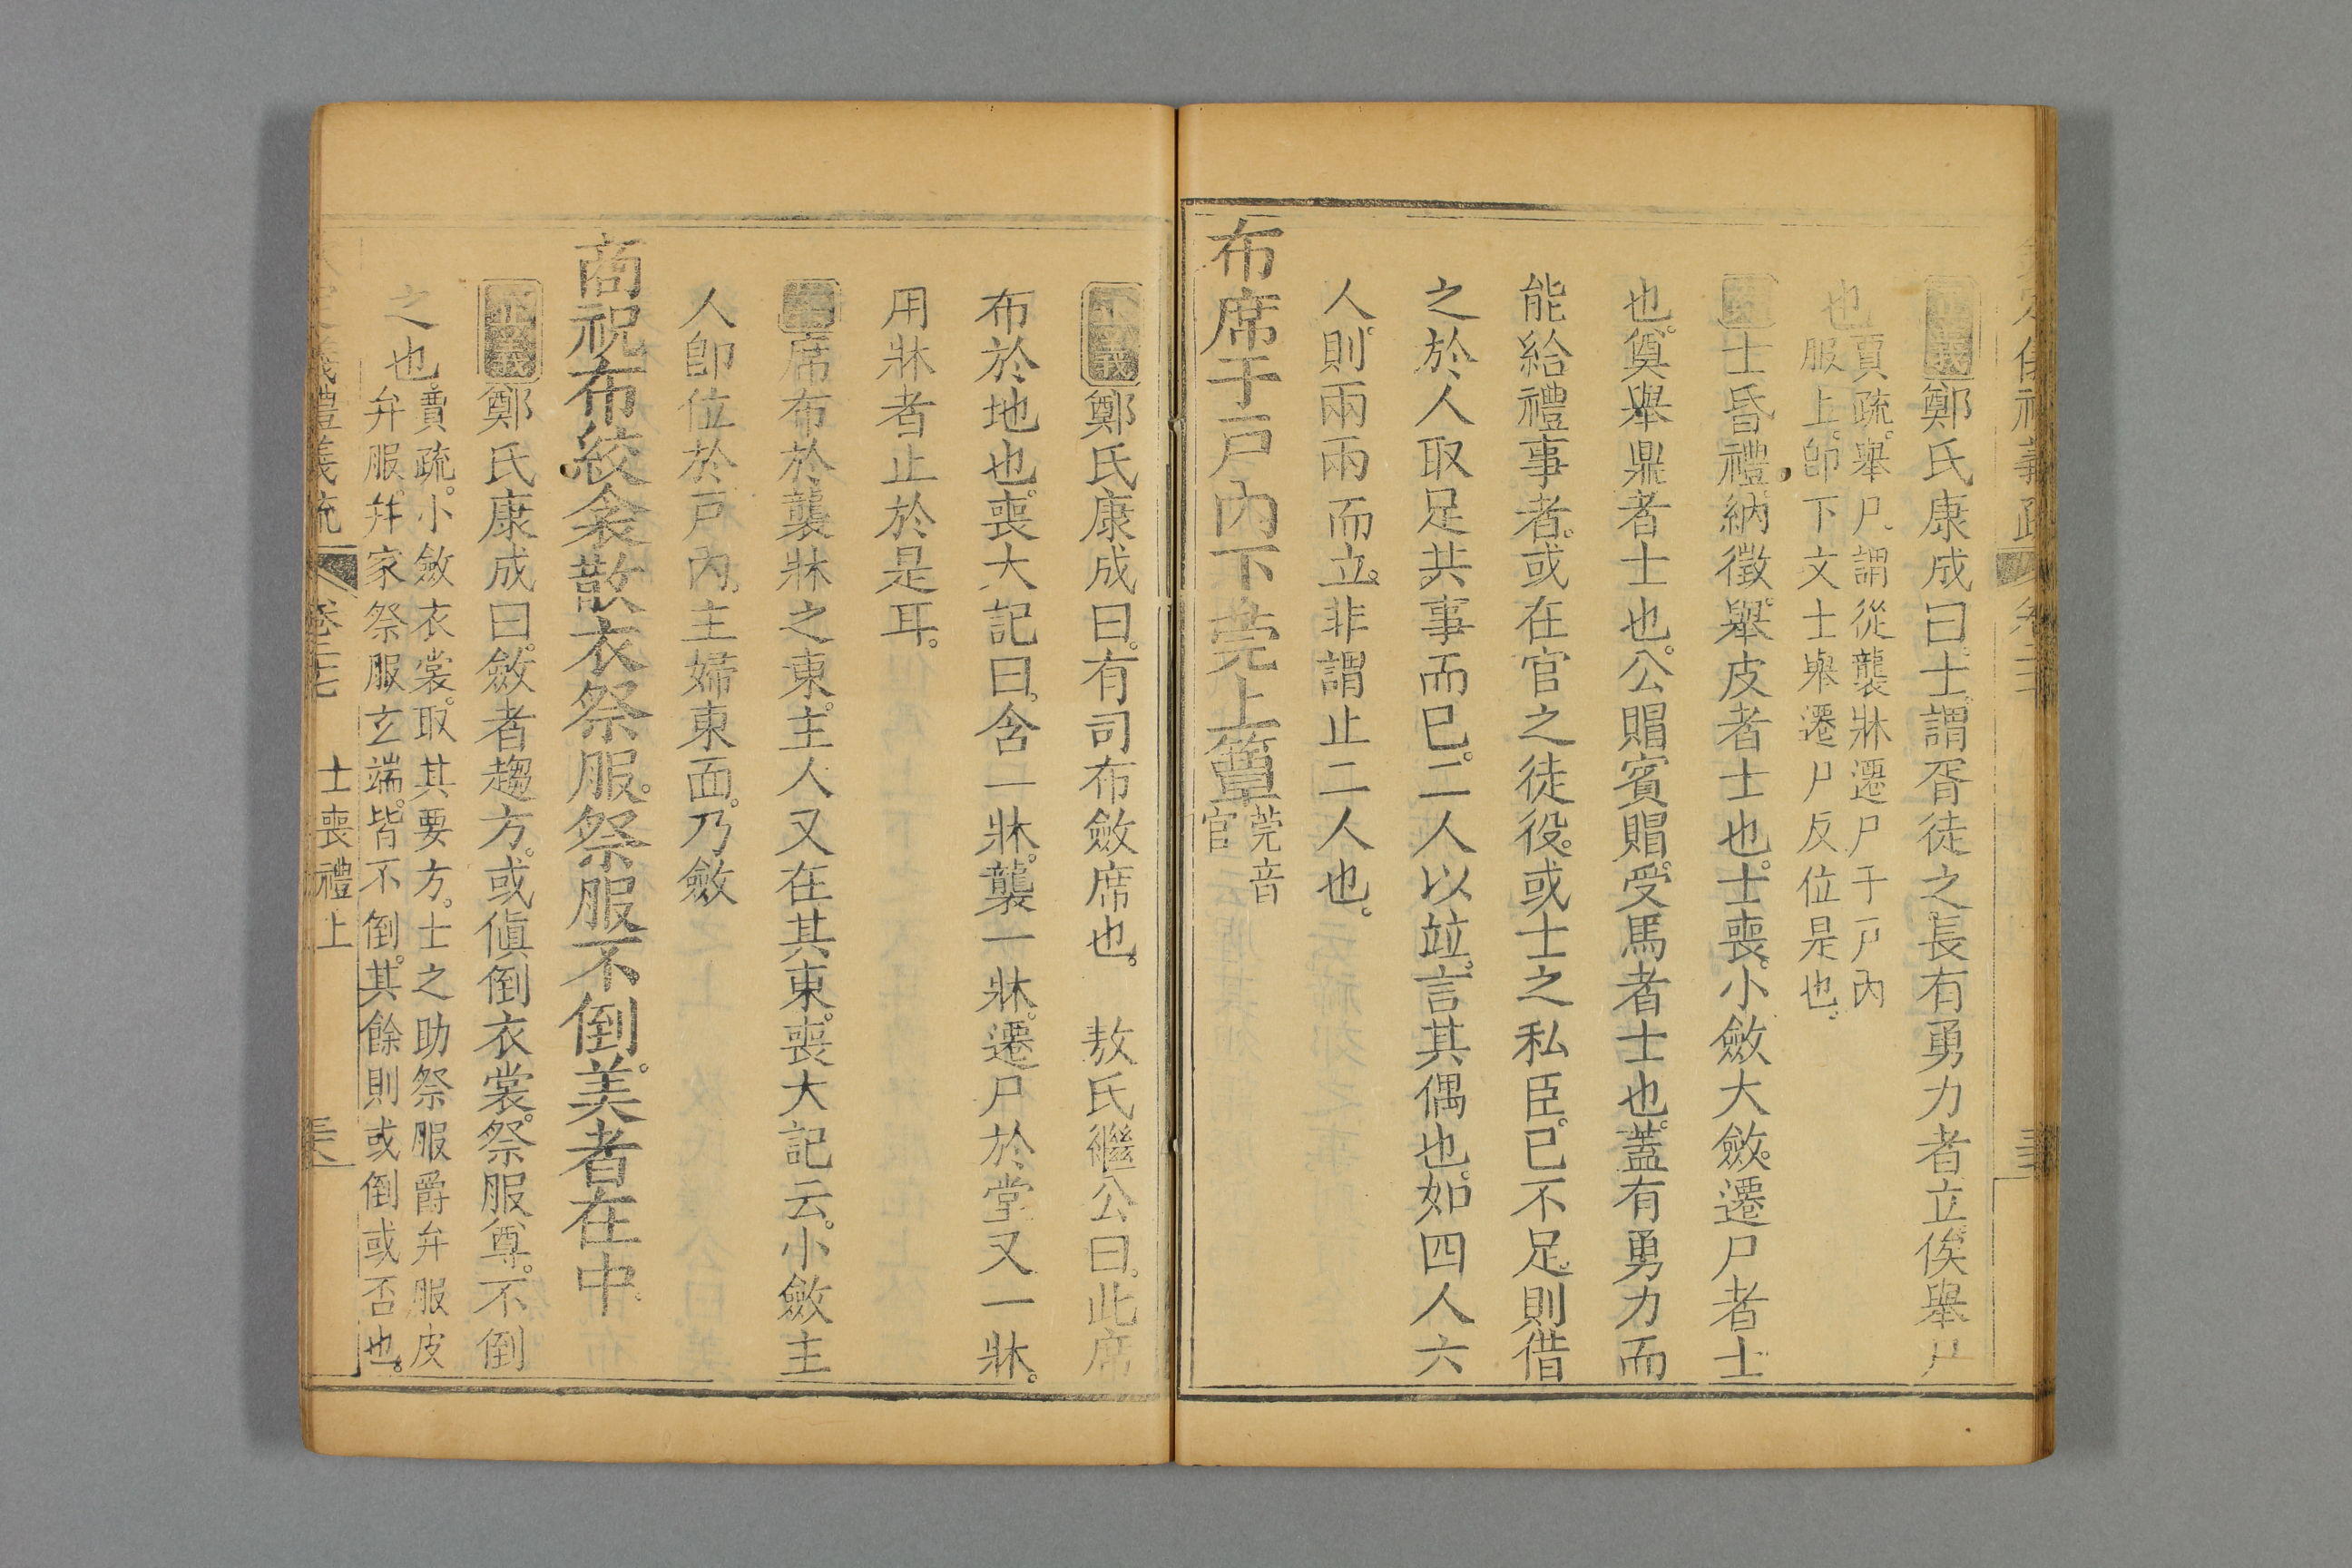 正義鄭氏康成曰士謂胥徒之長有勇力者立俟舉尸
也賈疏。舉尸。謂從襲牀遷尸于戶內
服上。卽下文士舉遷尸反位是也。
案士昏禮。納徵。舉皮者士也。士喪。小斂大斂。遷尸者士
也。奠舉鼎者士也。公賵賓賵。受馬者士也。蓋有勇力而
能給禮事者。或在官之徒役。或士之私臣。已不足。則借
之於人取足共事而已。二人以竝。言其偶也。如四人六
人。則兩兩而立。非謂止二人也。
布席于戶內下莞上簟莞音
官
正義鄭氏康成曰。有司布斂席也。 敖氏繼公曰。此席
布於地也。喪大記曰。含一牀。襲一牀。遷尸於堂又一牀。
用牀者止於是耳。
案席布於襲牀之東。主人又在其東。喪大記云。小斂主
人卽位於戶內。主婦東面。乃斂
商祝布絞衾散衣祭服。祭服不倒。美者在中。
正義鄭氏康成曰。斂者趨方。或傎倒衣裳。祭服尊。不倒
之也。賈疏。小斂衣裳。取其要方。士之助祭服爵弁服皮
弁服。幷家祭服玄端。皆不倒。其餘則或倒或否也。
禮義疏 卷二十七 士喪禮上